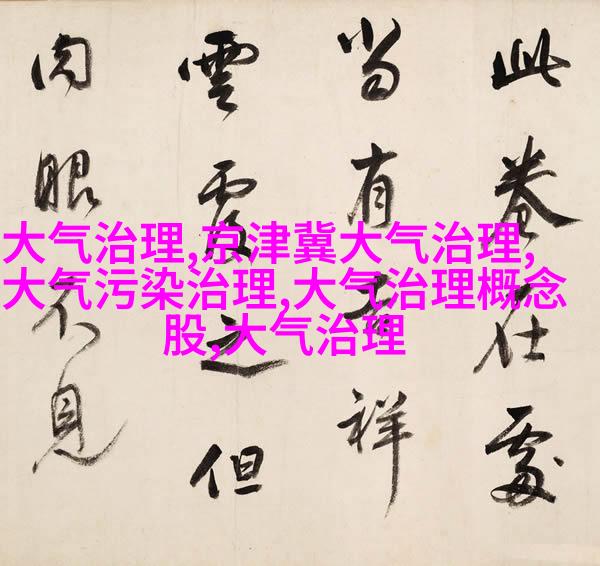 此卷在處
當有吉祥
雲覆之但
肉眼不見
大气治理,京津冀大气治理,
大气污染治理,大气治理概念
股,大气治理